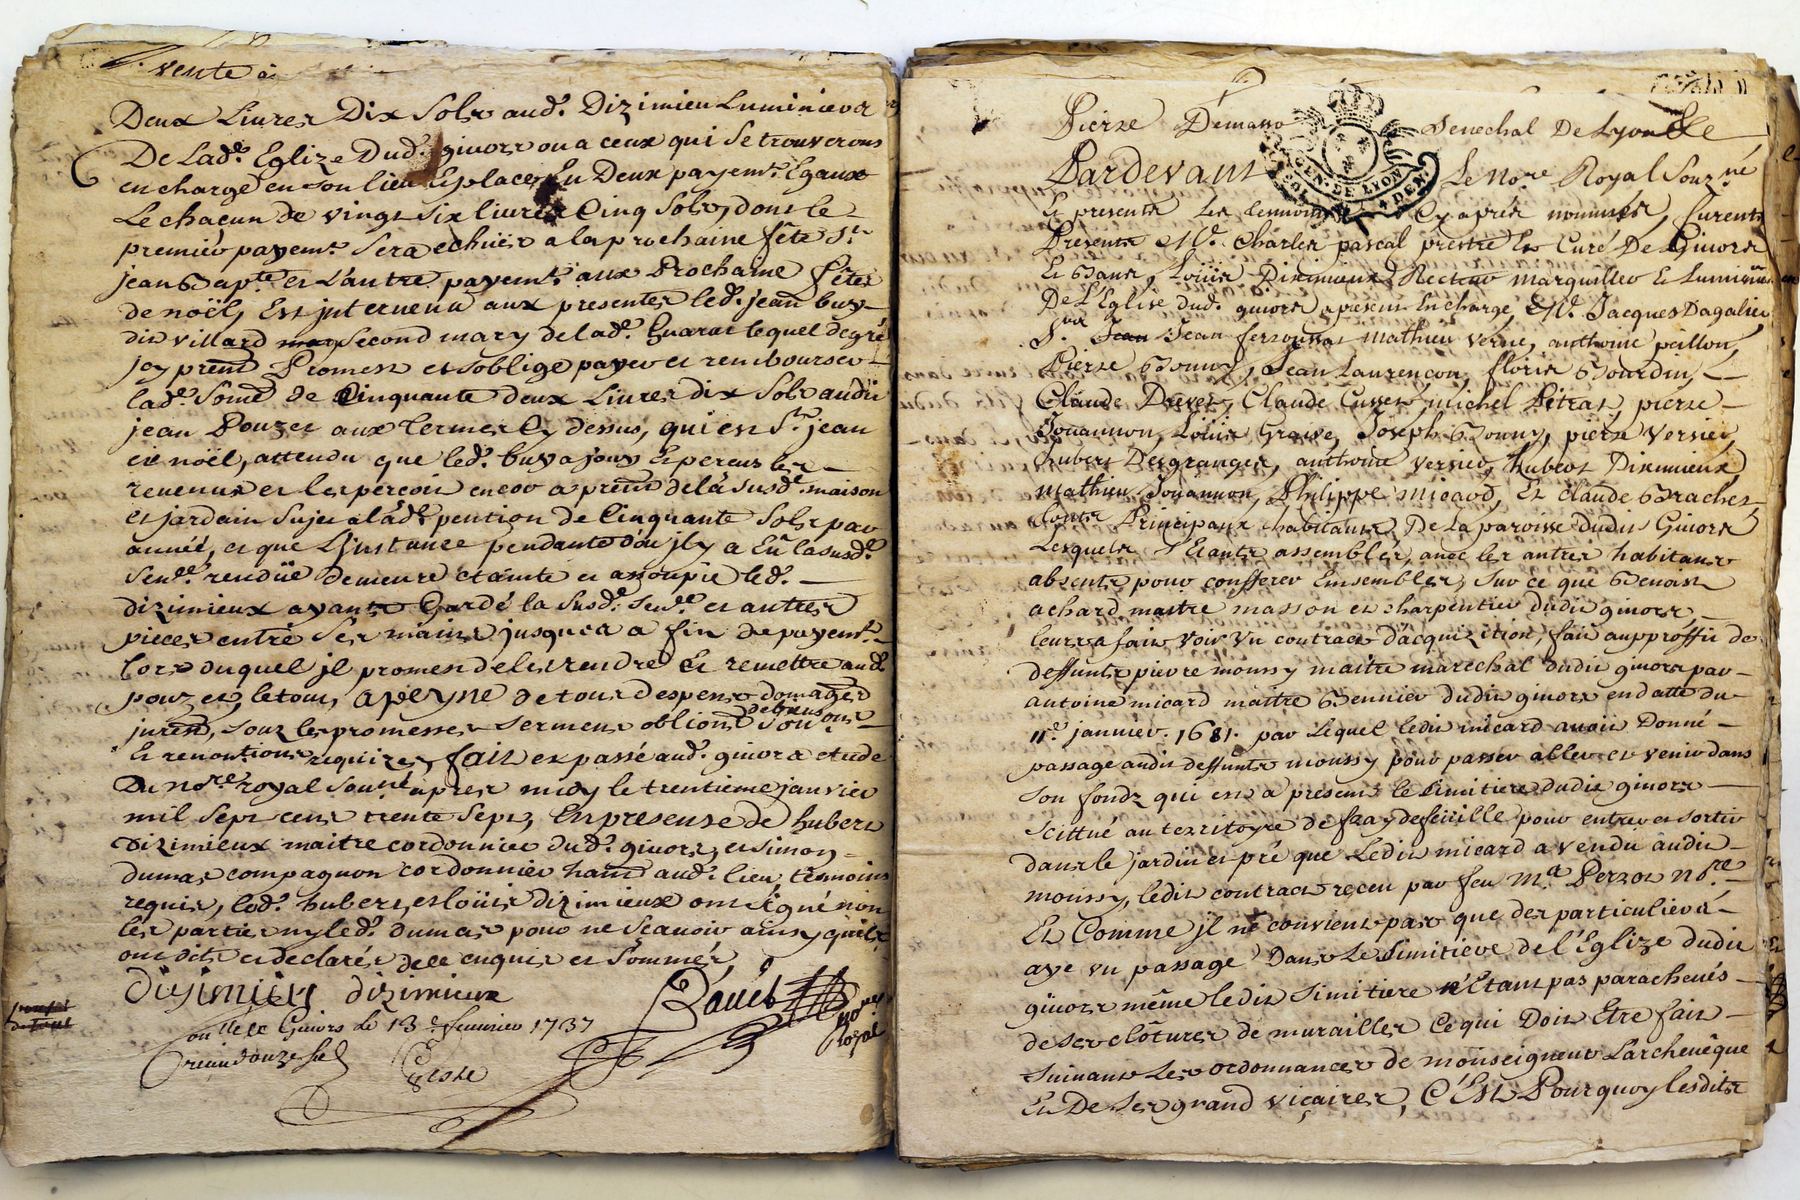 vente a
Deux Livres Dix Sols aud. Dizimieu Luminieur
De Lad.e Eglize Dud. givors ou a ceux qui Se trouverons
en charge en son lieu Et place En Deux payem.t Egaux
Le chacun de vingt six livres Cinq Sols, dont le
premier payem.t Sera echüer a la prochaine fête S.t
jean Bap.te et L'autre payem.t aux Prochaine fêtes
de noël, Est jntervenu aux presentes led. jean buy
dit villard Second mary de lad.e Guarat lequel de gré
jcy prent Promest et soblige payer et rembourser
lad.e Some de Cinquante deux Livres dix Sols audit
jean Pouzet aux termes Cy dessus, qui est S.t jean
et noël, attendu que led. buy a jouy Et perçus les
revenus et les perçoit encor a prent de la susd.e maison
et jardain Sujet a lad.e pention de Cinquante Sols par
année, et que L'jnstance pendante dou jl y a Eü la susd.e
Sen.ce rendüe demeure etainte et assoupie led.
dizimieux ayant Gardé la Susd.e Sen.ce et autres
pieces entre Ses mains jusques a fin de payem.t
lors duquel jl promest de les rendre Et remettre aud.
pouzet, le tout, a peyne de tous despens domages
jurent, sous les promesses serment obliont Soumons
debens
Et renontions requises, fait et passé aud. givors etude
Du no.re royal Sou.né apres midy le trentieme janvier
mil Sept cent trente Sept, En presense de hubert
Dizimieux maitre cordonnier dud. givors, et simon
dumas compagnon cordonnier hant aud. lieu, temoins
requis, led. hubert, et loüis dizimieux ont signé non
les parties ny led. dumas pour ne Scavoir ainsy quils
ont dit et declarés de ce enquis et Sommés
dizimieu dizimieux Bauet
no.re royal
Con.llé a Givors le 13.e fevrier 1737
Reçu douze sols
Geste
Pierre Demasso Senechal De Lyon &c
GEN. DE LYON
Pardevant Le No.re Royal Sous.né
Et presents Les temoins Cy apres nommés, furent
Presents M.e Charles pascal prestre Et Curé De Givors
Et Bans, Loüis Dizimieux Recteur marguiller Et Luminier
De L'Eglise dud. givors a present En charge, M.e Jacques Dagalier
S.r Jean fersoussat Mathieu Verne, anthoine peillon,
Pierre Bonny, Jean Laurençon, floris Bourdin,
Claude Drevet, Claude Cusset, michel Pitrat, pierre
Jouannon, Loüis Graive, Joseph Bonny, pierre Versier,
hubert Desgranges, anthoine versier, hubert Dizimieux,
Mathieu Jouannon, Philippe micard, Et claude Brachet
touts Principaux habitants, De la paroisse dudit Givors
Lesquels S'Etants assembles, avec les autres habitans
absents pour confferer Ensembles, Sur ce que Benoist
achard maitre masson et charpentier dudit givors
leurs a fait voir vn contract dacquizition, fait aupproffit de
deffunt pierre moussy maitre marechal dudit givors par
antoine micard maitre Bennier dudit givors en datte du
11.e janvier 1681. par Lequel ledit micard avait Donné
passage audit deffunt moussy pour passer aller et venir dans
son fondz qui est a present le Simitiere dudit givors
scittué au territoyre de fray defeüille pour entrer et sortir
dans le jardin et pré que Ledit micard a vendu audit
moussy, ledit contract reçeu par feu M.e Perrot No.re
Et Comme jl ne convient pas que des particuliers
aye vn passage Dans Le Simitiere de l'Eglize dudit
givors même ledit Simitiere n'Etant pas parachevés
de ses clôtures de murailles Ce qui Doit Etre fait
suivant Les ordonnances de monseigneur L'archevêque
Et De Ses grand viçaires, C'Est Pourquoy lesdits